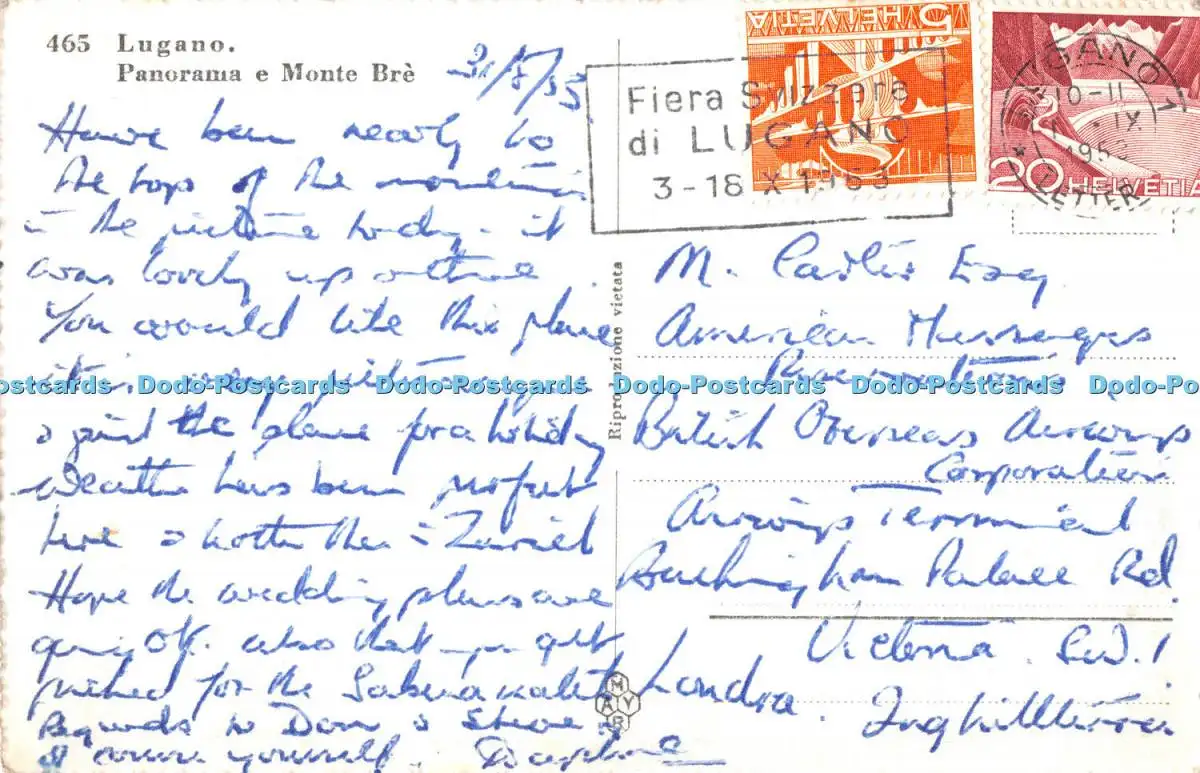 465 Lugano.
Panorama e Monte Brè
31/8/53
HELVETIA 5
20 HELVETIA
Fiera Svizzera
di LUGANO
3-18 X 1953
10-11
IX
LETTER
Have been nearly to
the tops of the mountains
in the picture today - it
was lovely up there.
You would like this place
& just the place for a holiday
weather has been perfect
here & hotter than in Zurich
Hope the wedding plans are
going OK. also that you get
fixed for the
Regards to Dom & Steve
& of course yourself. Daphne
Riproduzione vietata
M. Carter Esq
American Passenger
Reservations
British Overseas Airways
Corporation
Airways Terminal
Buckingham Palace Rd
Victoria. S.W.1
Londra. Inghilterra
MAYR
Dodo-Postcards Dodo-Postcards Dodo-Postcards Dodo-Postcards Dodo-Postcards